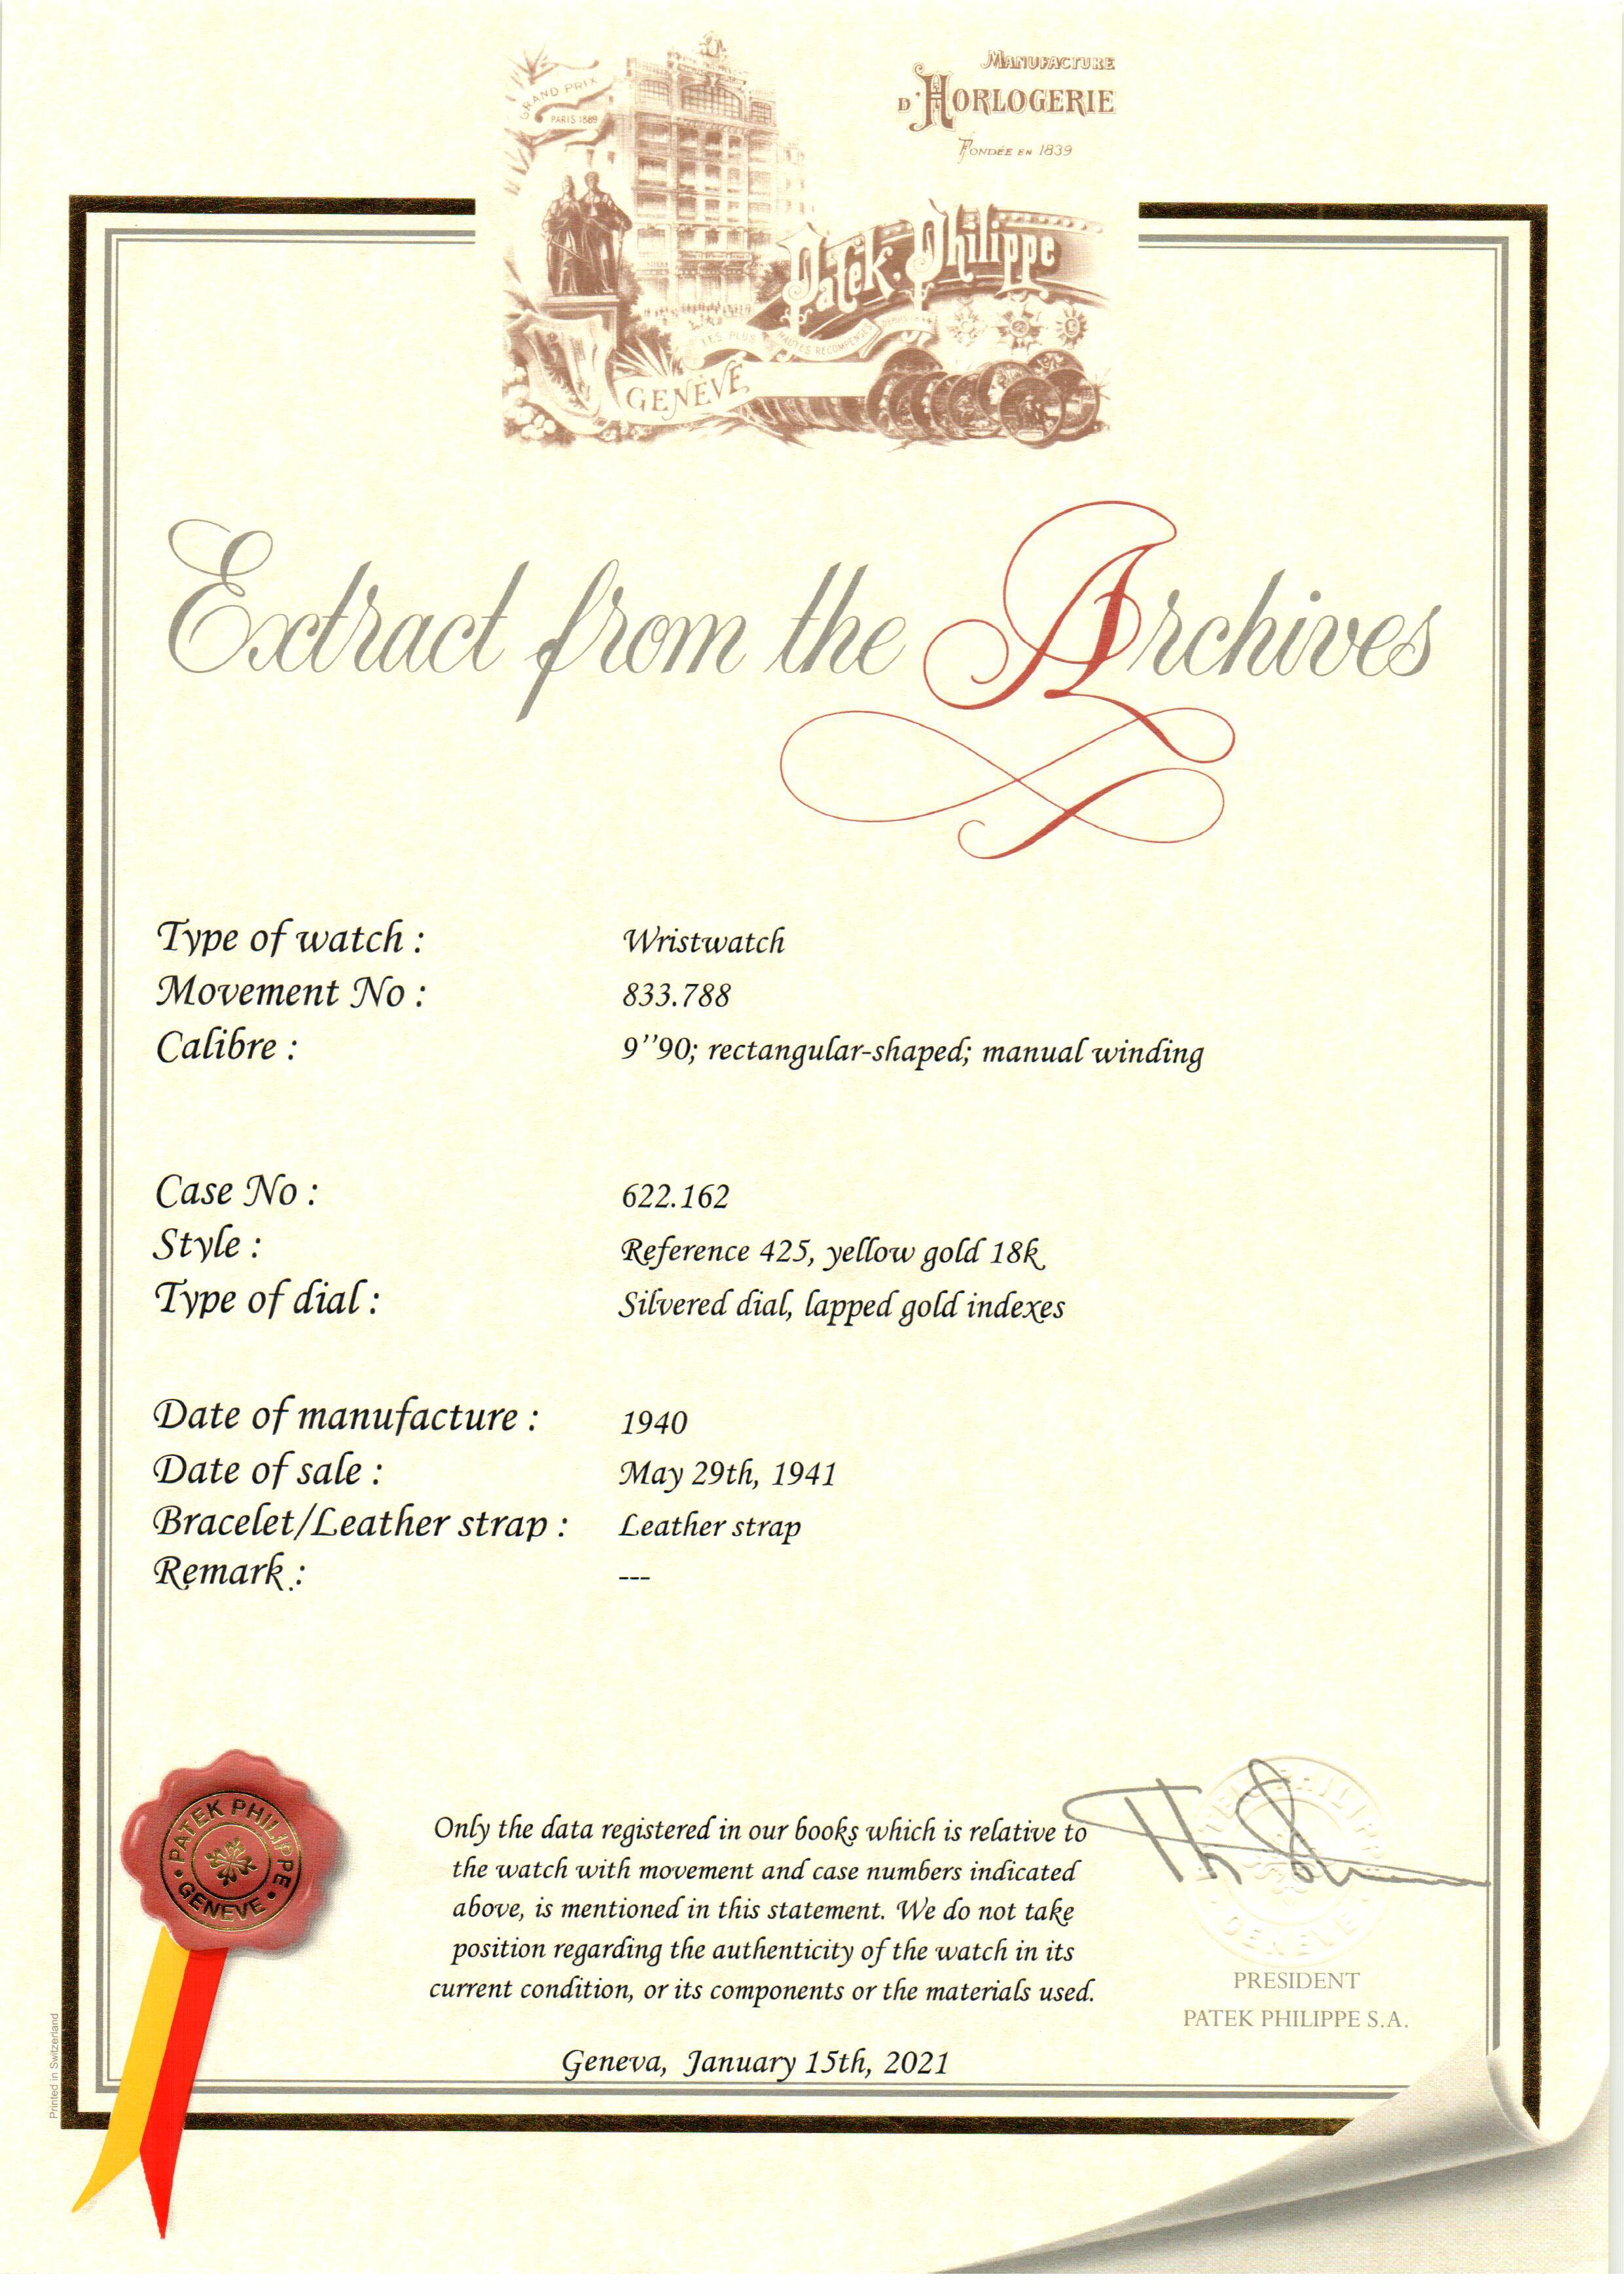 GRAND PRIX
PARIS 1889
MANUFACTURE
D'HORLOGERIE
FONDÉE EN 1839
Patek. Philippe
LES PLUS HAUTES RECOMPENSES
GENÈVE
Extract from the Archives
Type of watch : Wristwatch
Movement No : 833.788
Calibre : 9’’90; rectangular-shaped; manual winding
Case No : 622.162
Style : Reference 425, yellow gold 18k
Type of dial : Silvered dial, lapped gold indexes
Date of manufacture : 1940
Date of sale : May 29th, 1941
Bracelet/Leather strap : Leather strap
Remark : ---
PATEK PHILIPPE
GENEVE
Only the data registered in our books which is relative to
the watch with movement and case numbers indicated
above, is mentioned in this statement. We do not take
position regarding the authenticity of the watch in its
current condition, or its components or the materials used.
Geneva, January 15th, 2021
PATEK PHILIPPE
GENEVE
PRESIDENT
PATEK PHILIPPE S.A.
Printed in Switzerland